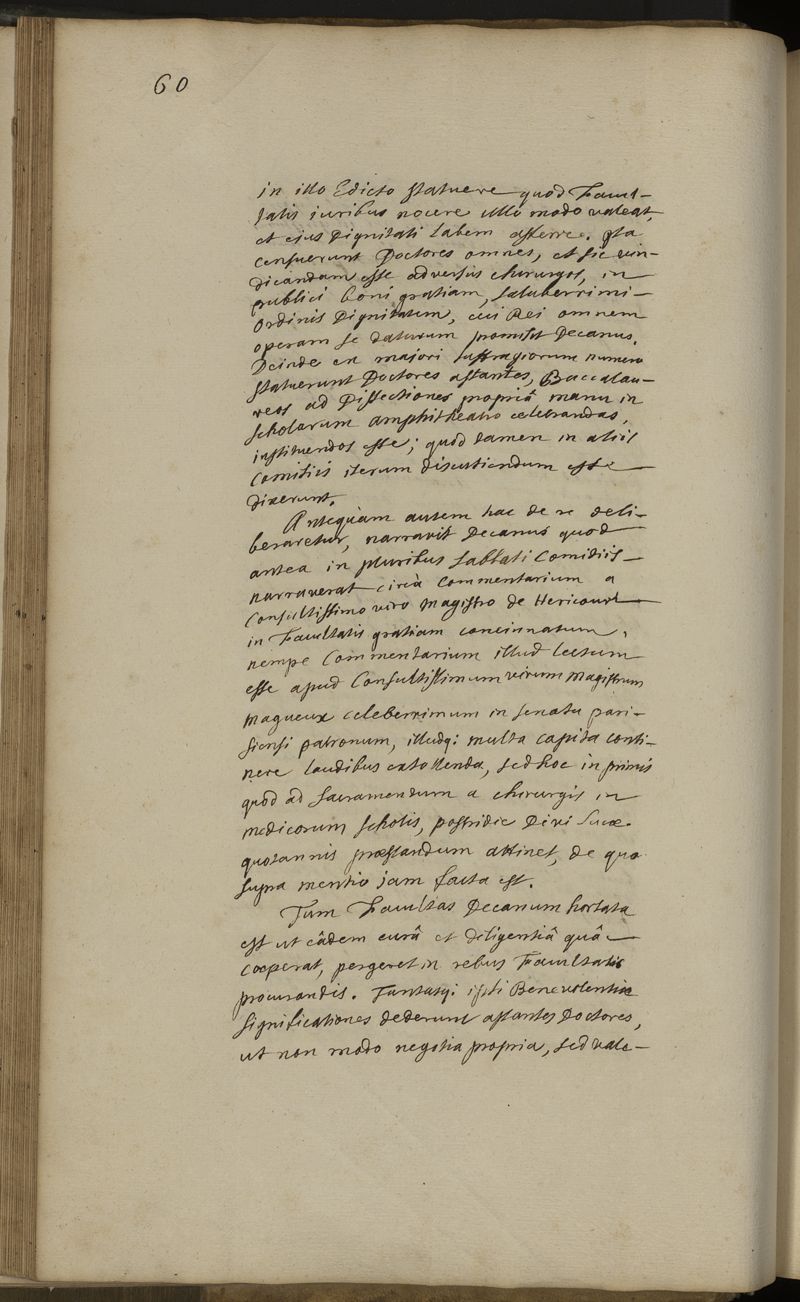 60
in illo Edicto statuere quod Facul-
tatis iuribus nocere ullo modo valeat,
et ejus Dignitati labem afferre. Ita
censuerunt Doctores omnes, et sic vin-
dicandam esse adversus chirurgos, in
publici boni gratiam, saluberrimi
Ordinis Dignitatem, cui Rei omnem
operam se daturum promisit Decanus.
Deinde ex majori suffragiorum numero
statuerunt Doctores astantes, Baccalau-
reos ad Dissectiones propriâ manu in
scholarum amphitheatro celebrandas,
instituendos esse; quod tamen in aliis
Comitiis iterum discutiendum esse
dixerunt.
Antequam autem hac de re deli-
beraretur, narravit Decanus quod
antea in pluribus sabbati Comitiis
narraverat circà Commentarium a
Consultissimo viro Magistro de Hericourt
in Facultatis gratiam concinnatum,
nempe Commentarium illud lectum
esse apud Consultissimum virum Magistrum
Magueux celeberrimum in senatu pari-
siensi patronum, illudq: multa capita conti-
nere laudibus extollenda, sed hoc in primis
quod ad sacramentum a chirurgis in
medicorum scholis, postridie Divi Lucæ
quotannis præstandum attinet, de quo
supra mentio jam facta est.
Tum Facultas Decanum hortata
est ut eâdem curâ et diligentiâ quâ
coeperat, pergeret in rebus Facultatis
procurandis. Tantasq: ipsi Benevolentiæ
significationes dederunt astantes Doctores,
ut non modo negotia propria, sed vale-